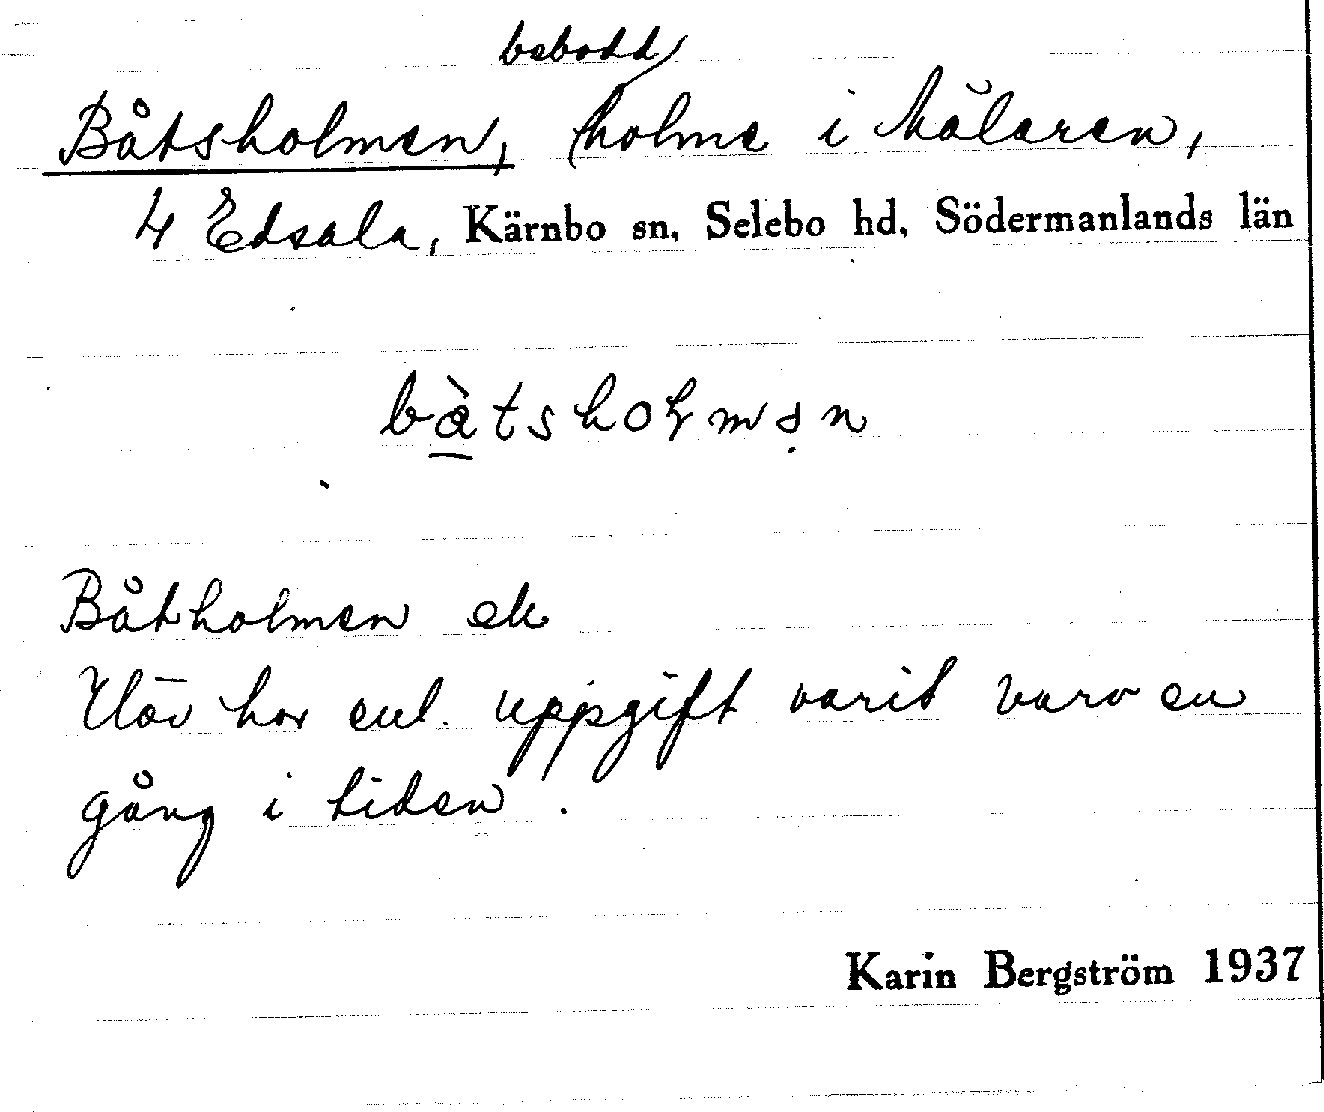 bebodd
Båtsholmen, holme i Mälaren,
4 Edsala, Kärnbo sn, Selebo hd, Södermanlands län
bàtsholmən
Båtholmen ek
Här har enl. uppgift varit varv en
gång i tiden.
Karin Bergström 1937